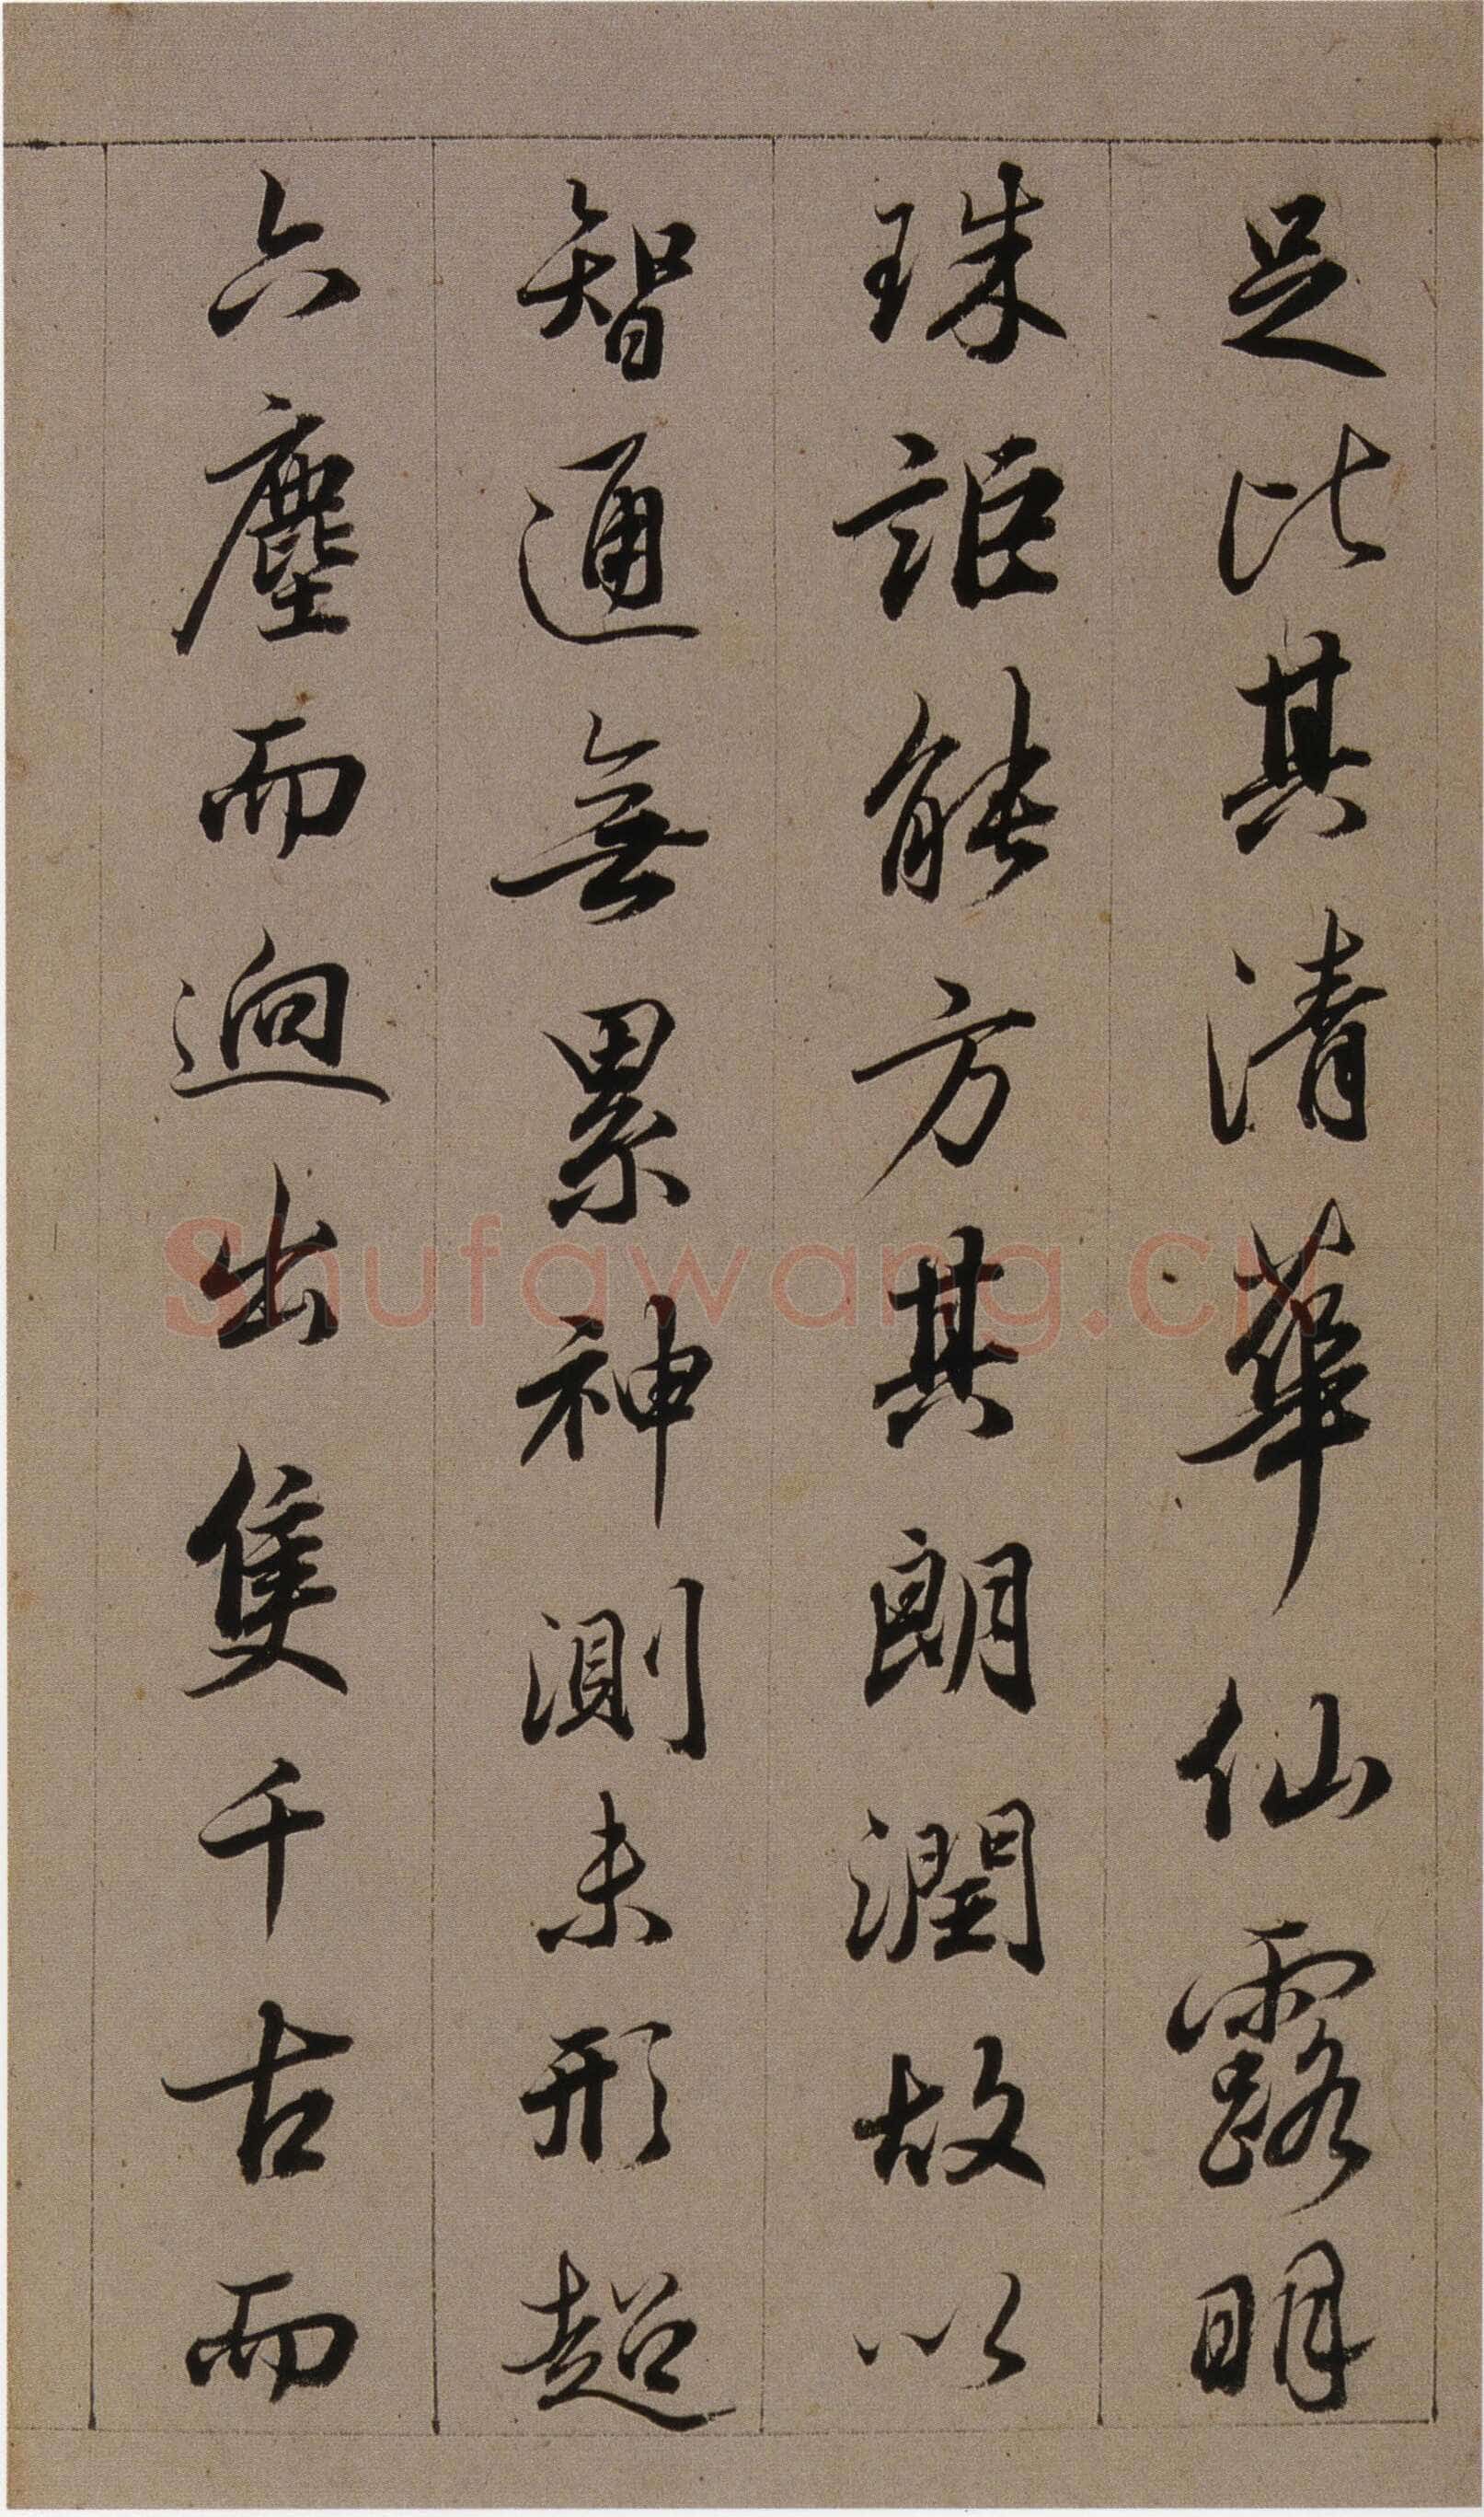 足比其清華仙露明
珠詎能方其朗潤故以
智通無累神測未形超
六塵而迥出隻千古而
Shufawang.CN